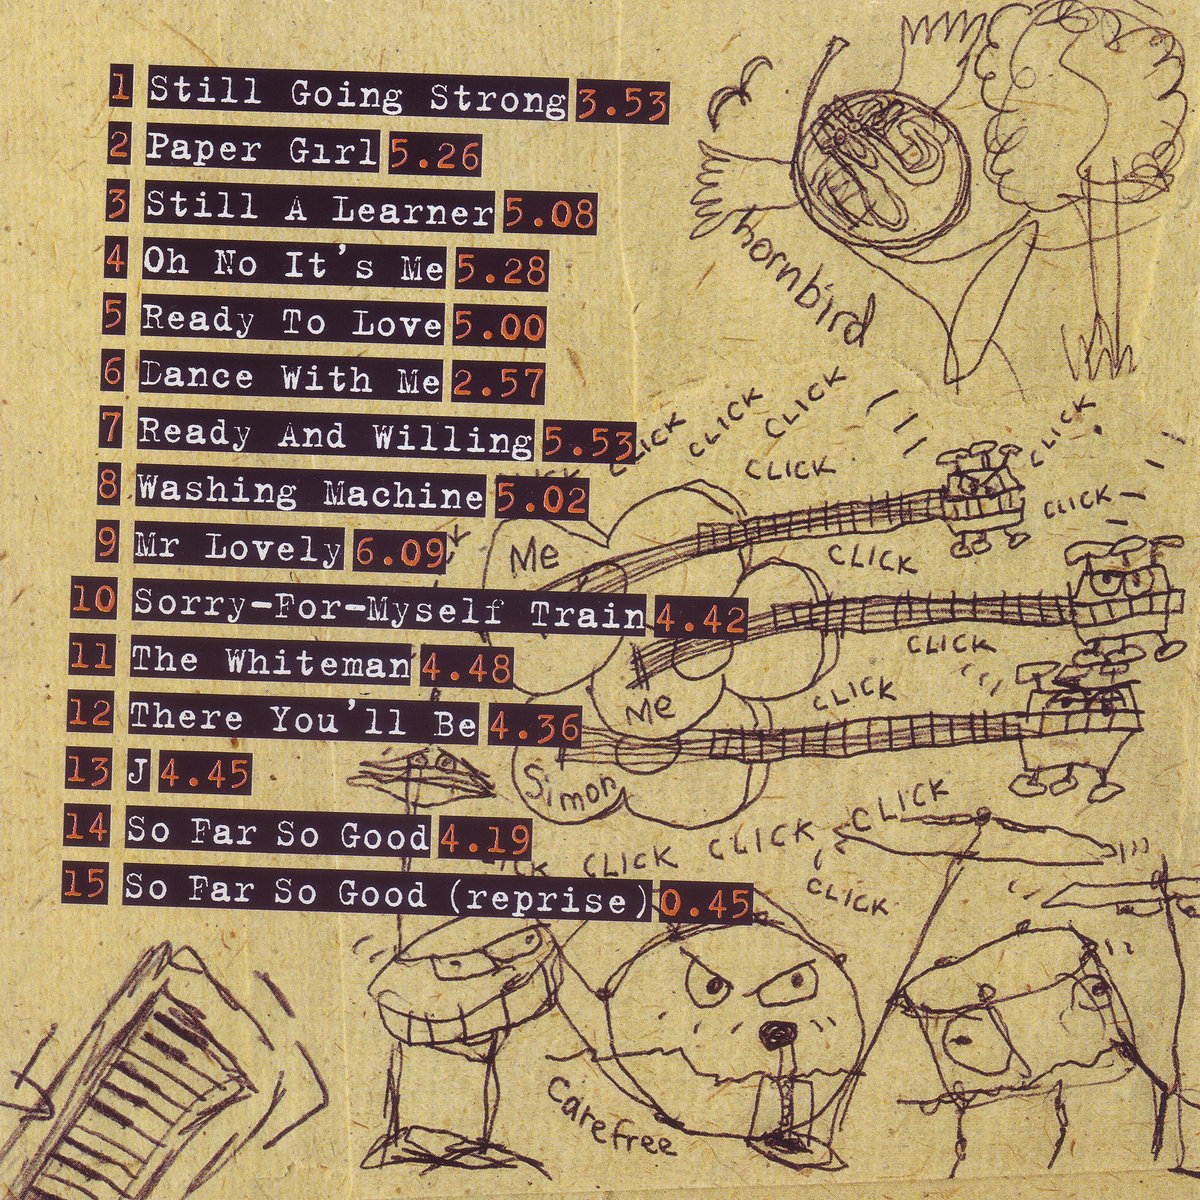 1 Still Going Strong 3.53
2 Paper Girl 5.26
3 Still A Learner 5.08
4 Oh No It's Me 5.28
5 Ready To Love 5.00
6 Dance With Me 2.57
7 Ready And Willing 5.53
8 Washing Machine 5.02
9 Mr Lovely 6.09
10 Sorry-For-Myself Train 4.42
11 The Whiteman 4.48
12 There You'll Be 4.36
13 J 4.45
14 So Far So Good 4.19
15 So Far So Good (reprise) 0.45
Thornbird
CLICK
CLICK
CLICK
CLICK
CLICK
CLICK
Me
CLICK
CLICK
Me
CLICK
Simon
CLICK
CLICK
CLICK
CLICK
Carefree